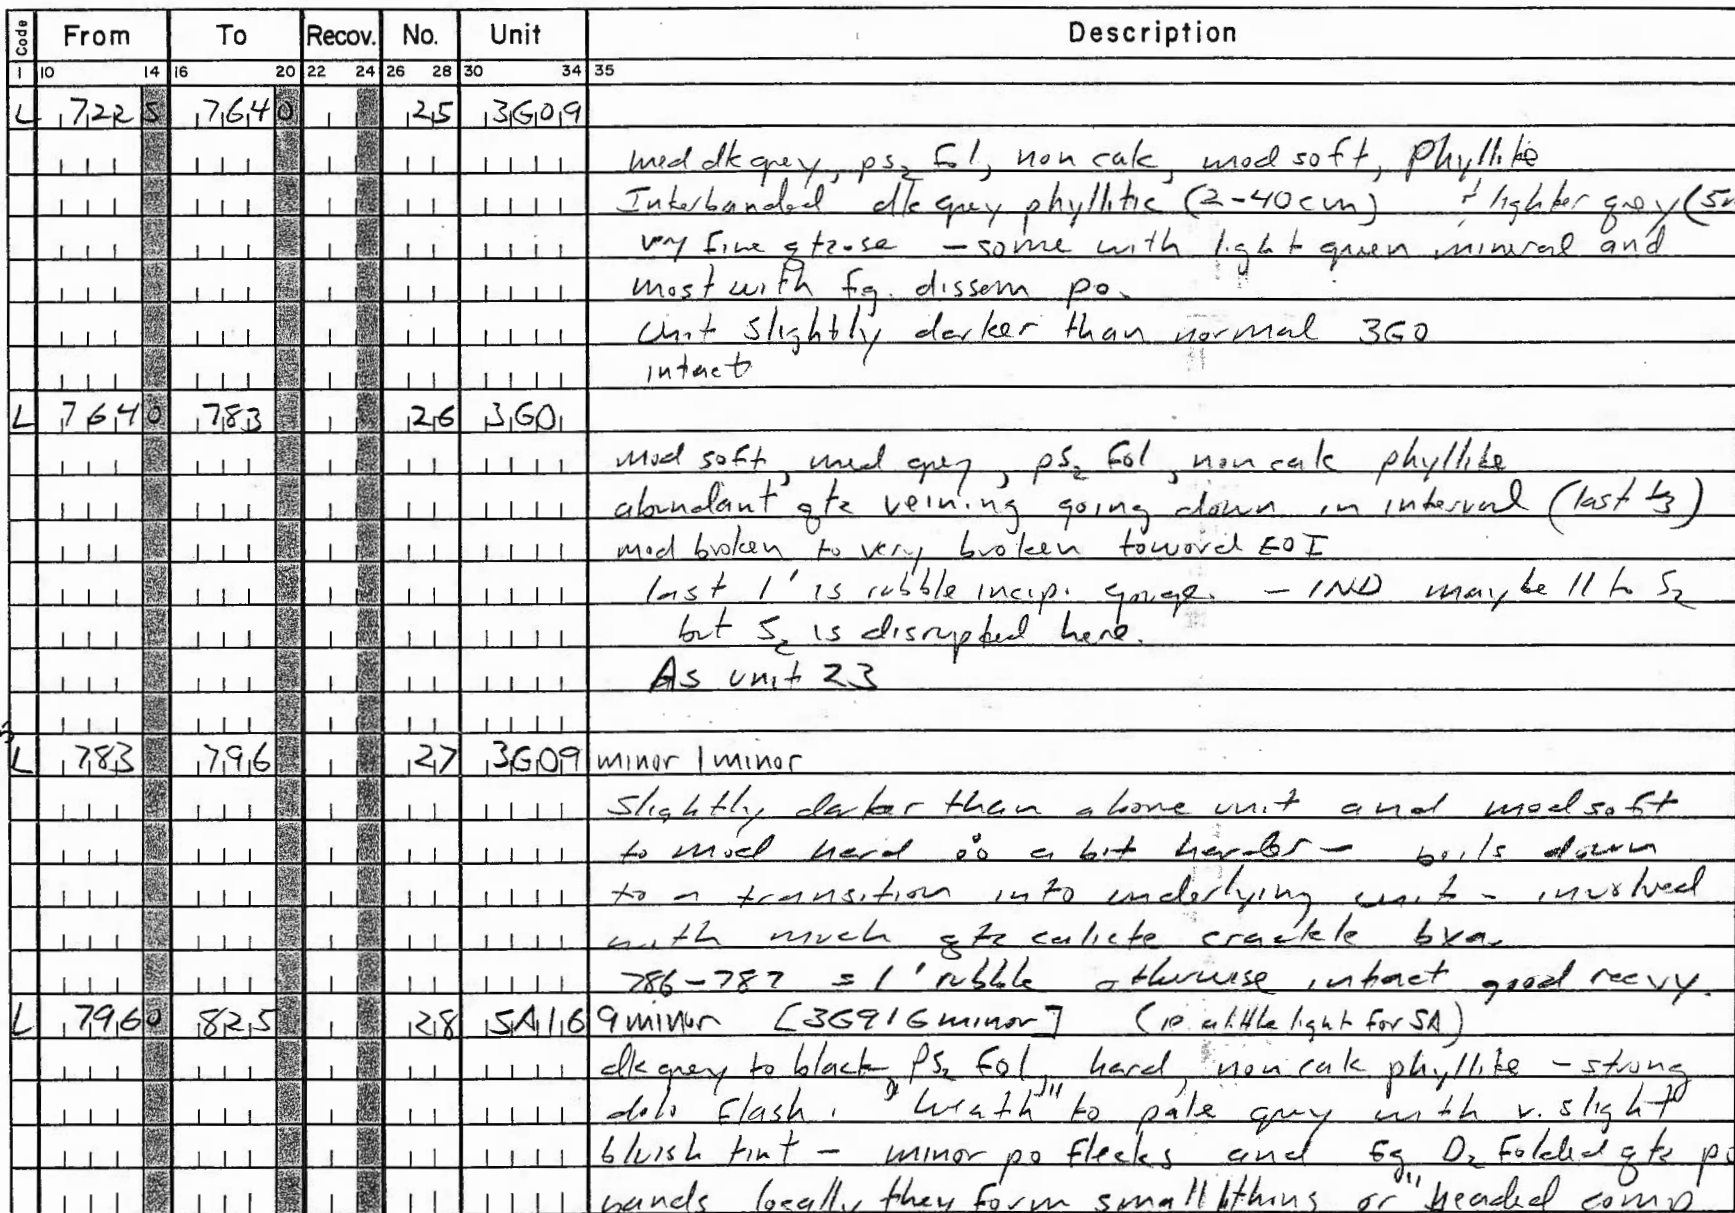 Code From To Recov. No. Unit Description
1 10 14 16 20 22 24 26 28 30 34 35
L 722 5 764 0 25 3G09
med dk grey, ps₂ fol, non calc, mod soft, phyllite
Interbanded dk grey phyllitic (2-40cm) + lighter grey (5m
very fine qtzose - some with light green mineral and
most with fg. dissem po.
Unit slightly darker than normal 3G0
intact
L 764 0 783 26 3G0
mod soft, med grey, pS₂ fol, non calc phyllite
abundant qtz veining going down in interval (last ⅓)
mod broken to very broken toward EOI
last 1' is rubble incip. gouge. - IND may be // to S₂
but S₂ is disrupted here.
As unit 23
L 783 796 27 3G09 minor / minor
Slightly darker than above unit and mod soft
to mod hard ∴ a bit harder - boils down
to a transition into underlying unit - involved
with much qtz calicte crackle bxa.
786-787 = 1' rubble otherwise intact good recvy.
L 796 0 825 28 5A16 9 minor [3G916 minor] (ie a little light for 5A)
dk grey to black, PS₂ fol, hard, non calc phyllite - strong
dolo flash. to pale grey with v. slight
bluish tint - minor po flecks and fg D₂ folded qtz po
bands locally they form small lithins or "beaded comp